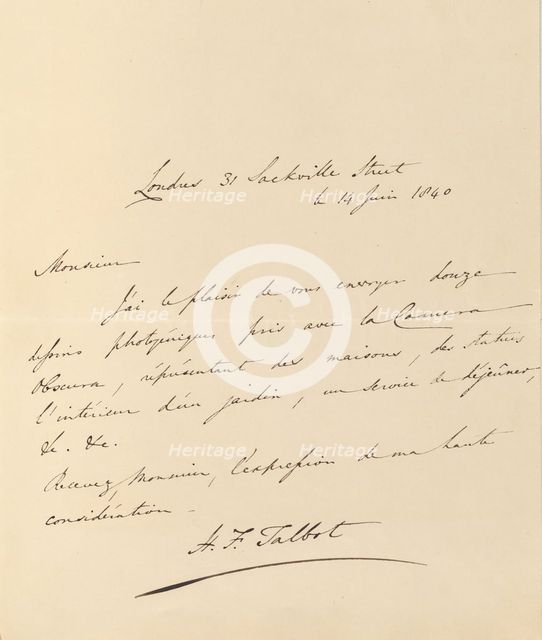 Londres 31 Sackville Street
le 14 Juin 1840
Monsieur
J'ai le plaisir de vous envoyer douze
dessins photogéniques pris avec la Camera
Obscura, représentant des maisons, des statues
l'intérieur d'un jardin, un service de déjeûner,
&c. &c.
Recevez, Monsieur, l'expression de ma haute
considération -
H. F. Talbot
Heritage Heritage
©
Heritage Heritage Heritage
Heritage Heritage